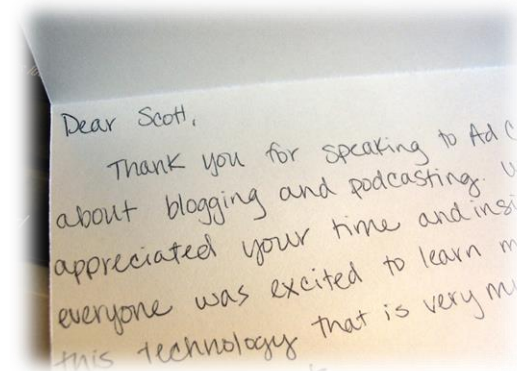 Dear Scott,
Thank you for speaking to Ad C
about blogging and podcasting.
appreciated your time and insi
everyone was excited to learn m
this technology that is very m